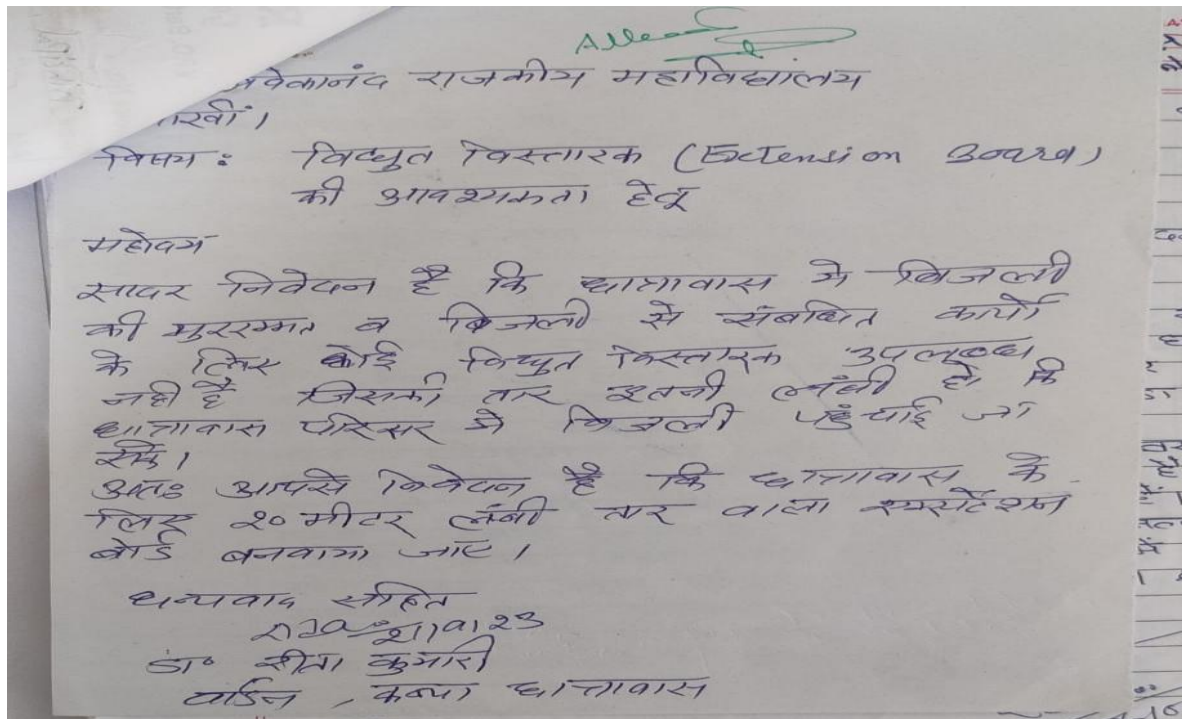 विवेकानंद राजकीय महाविद्यालय
विषय : विद्युत विस्तारक (Extension Board)
की आवश्यकता हेतू
महोदय
सादर निवेदन है कि छात्रावास मे बिजली
की मुरम्मत व बिजली से संबधित कार्यो
के लिए कोई विद्युत विस्तारक उपलब्ध
नही है जिसकी तार इतनी लंबी हो कि
छात्रावास परिसर मे बिजली पहुंचाई जा
सके।
अतः आपसे निवेदन है कि छात्रावास के
लिए २० मीटर लंबी तार वाला एक्सटेंशन
बोर्ड बनवाया जाए।
धन्यवाद सहित
डा० रीता कुमारी
वार्डन, कन्या छात्रावास